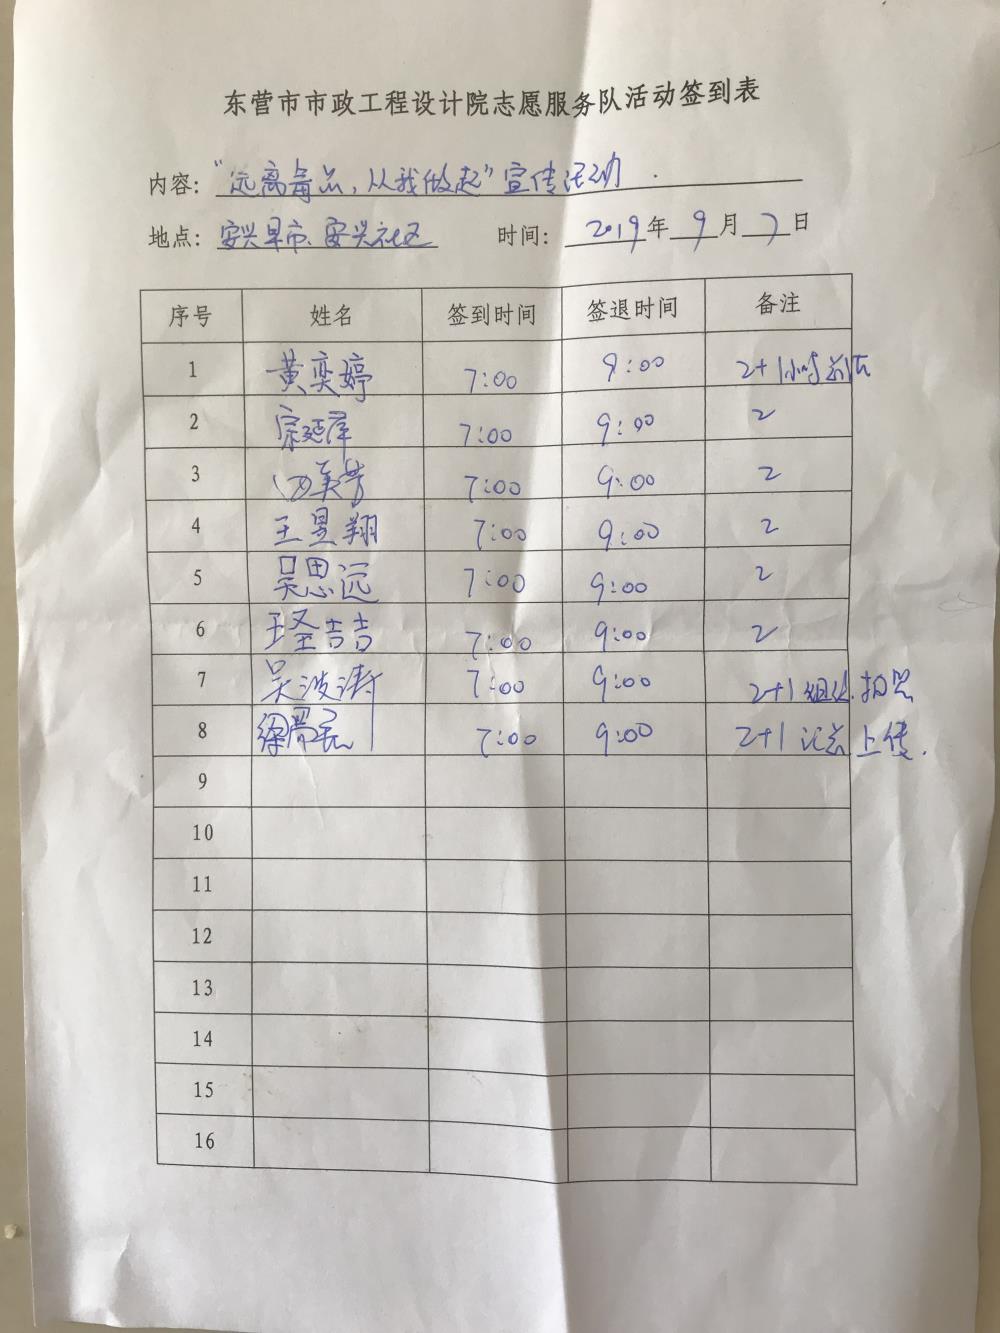 东营市市政工程设计院志愿服务队活动签到表
内容：“远离毒品，从我做起”宣传活动．
地点：安兴早市、安兴社区 时间：2019年9月7日
序号 姓名 签到时间 签退时间 备注
1 黄奕婷 7:00 9:00 2+1小时
2 宗延泽 7:00 9:00 2
3 7:00 9:00 2
4 王昱翔 7:00 9:00 2
5 吴思远 7:00 9:00 2
6 7:00 9:00 2
7 吴波涛 7:00 9:00 2+1组织.拍照
8 7:00 9:00 2+1 上传.
9
10
11
12
13
14
15
16